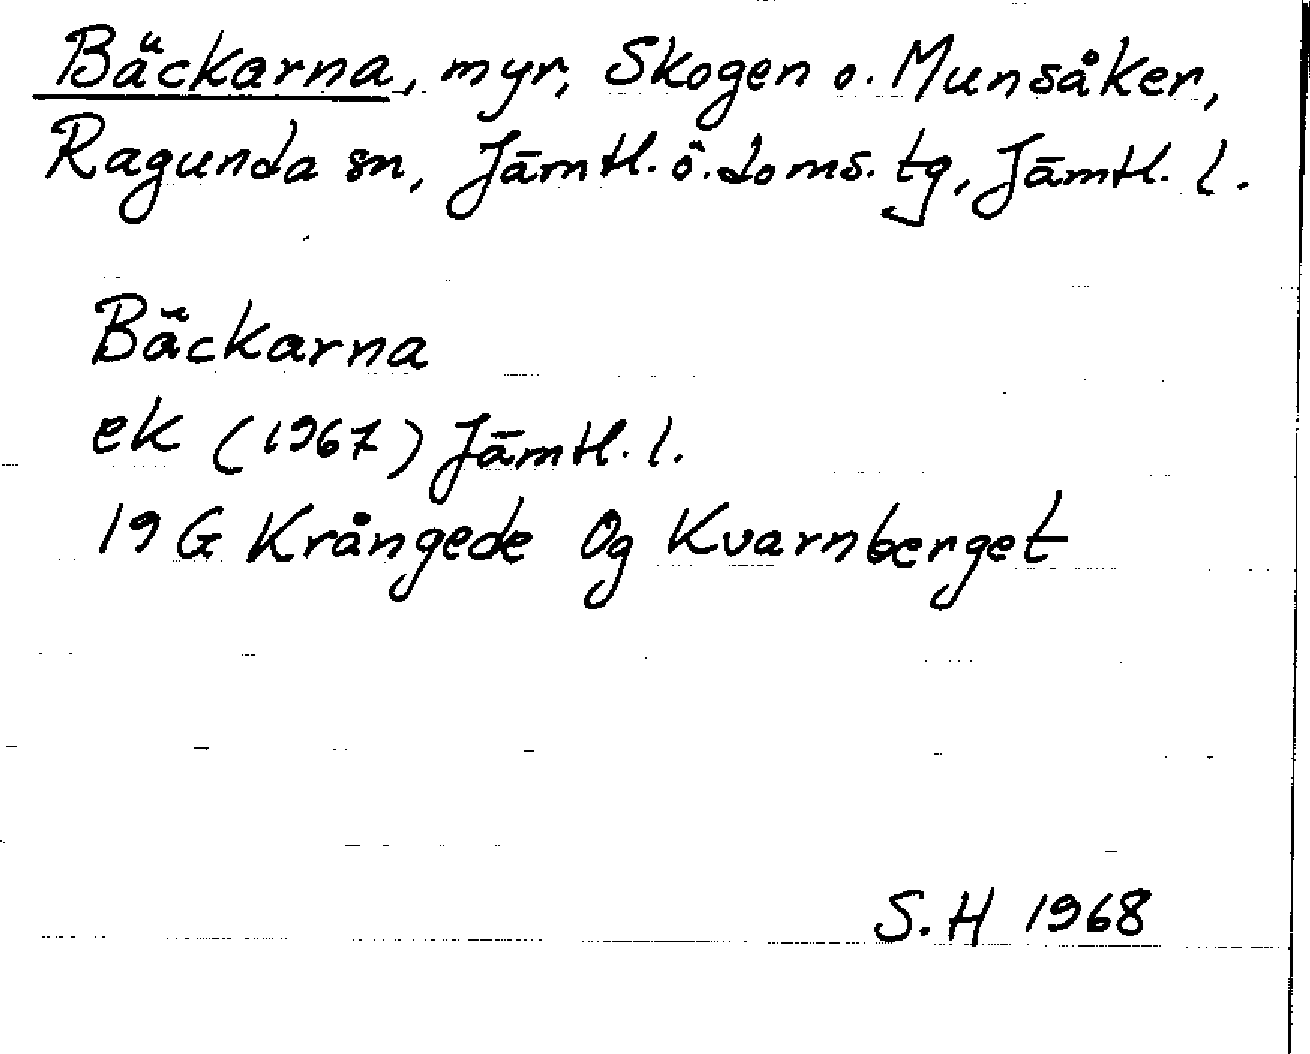 Bäckarna, myr, Skogen o. Munsåker,
Ragunda sn, Jämtl. ö. doms. tg, Jämtl. l.
Bäckarna
ek (1967) Jämtl. l.
19 G Krångede 0g Kvarnberget
S. H 1968